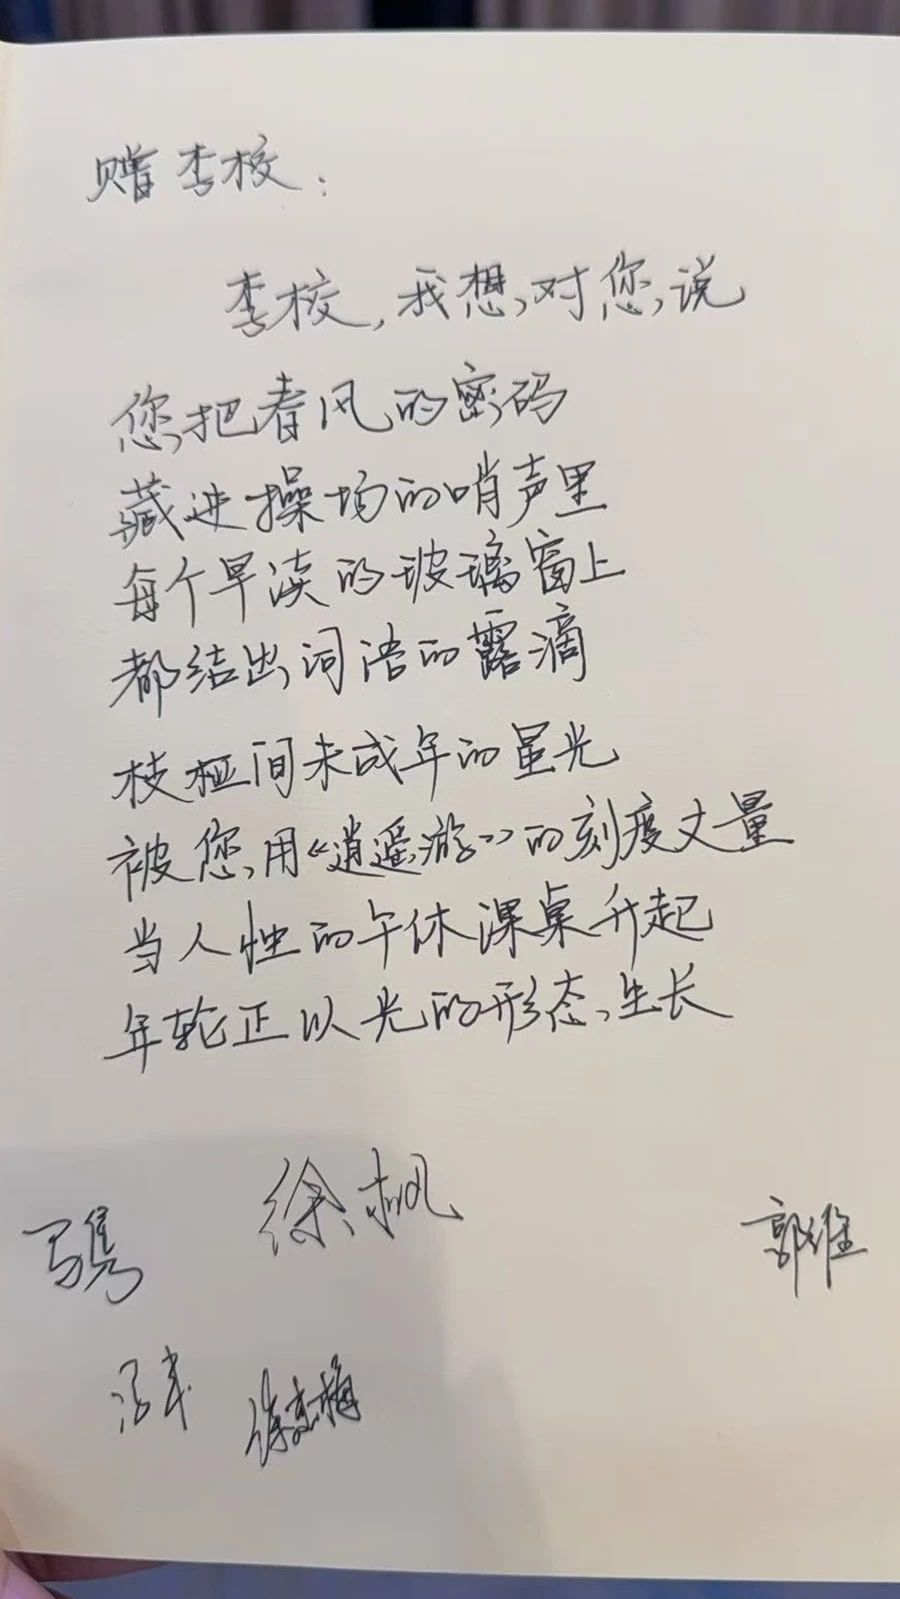 赠李校：
李校，我想对您说
您把春风的密码
藏进操场的哨声里
每个早读的玻璃窗上
都结出词语的露滴
枝桠间未成年的星光
被您用《逍遥游》的刻度丈量
当人性的午休课桌升起
年轮正以光的形态生长
徐枫
郭维